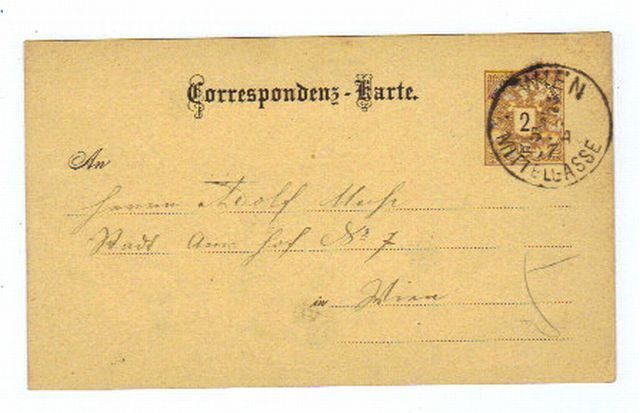 Correspondenz-Karte.
WIEN
2
MITTELGASSE
An
Herrn Adolf
Stadt Am Hof No 7
in Wien